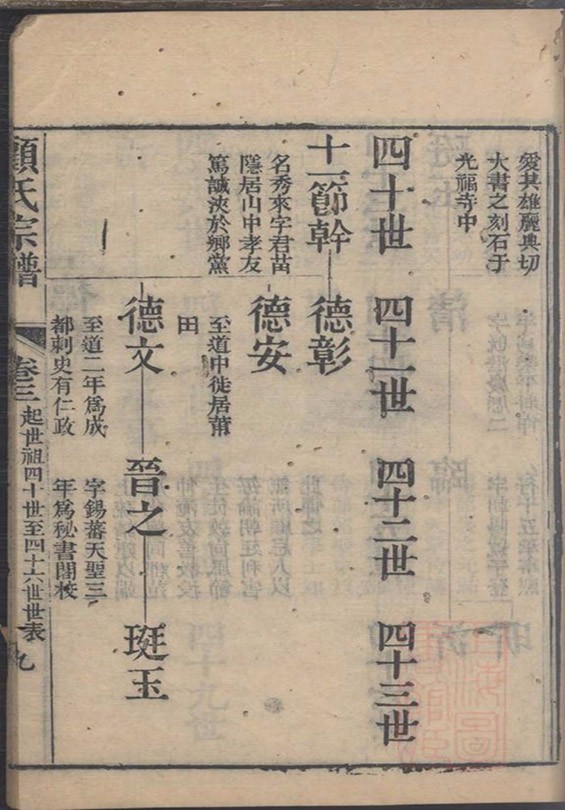 愛其雄麗典切
大書之刻石于
光福寺中
四十世
四十一世
四十二世
四十三世
十一節幹
德彰
名秀來字君苗
隱居山中孝友
篤誠浹於鄉黨
德安
至道中徙居莆
田
德文
晉之
珽玉
至道二年爲成
都刺史有仁政
字錫蕃天聖三
年爲秘書閣校
顧氏宗譜
卷三
起世祖四十世至四十六世世表
九